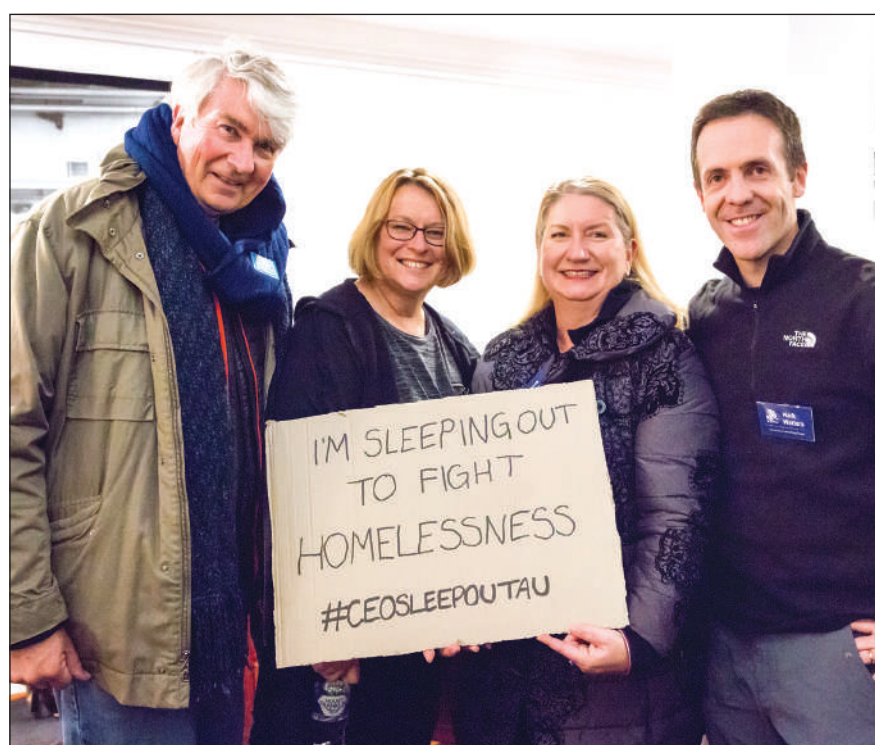 I'M SLEEPING OUT
TO FIGHT
HOMELESSNESS
#CEOSLEEPOUTAU
THE
NORTH
FACE